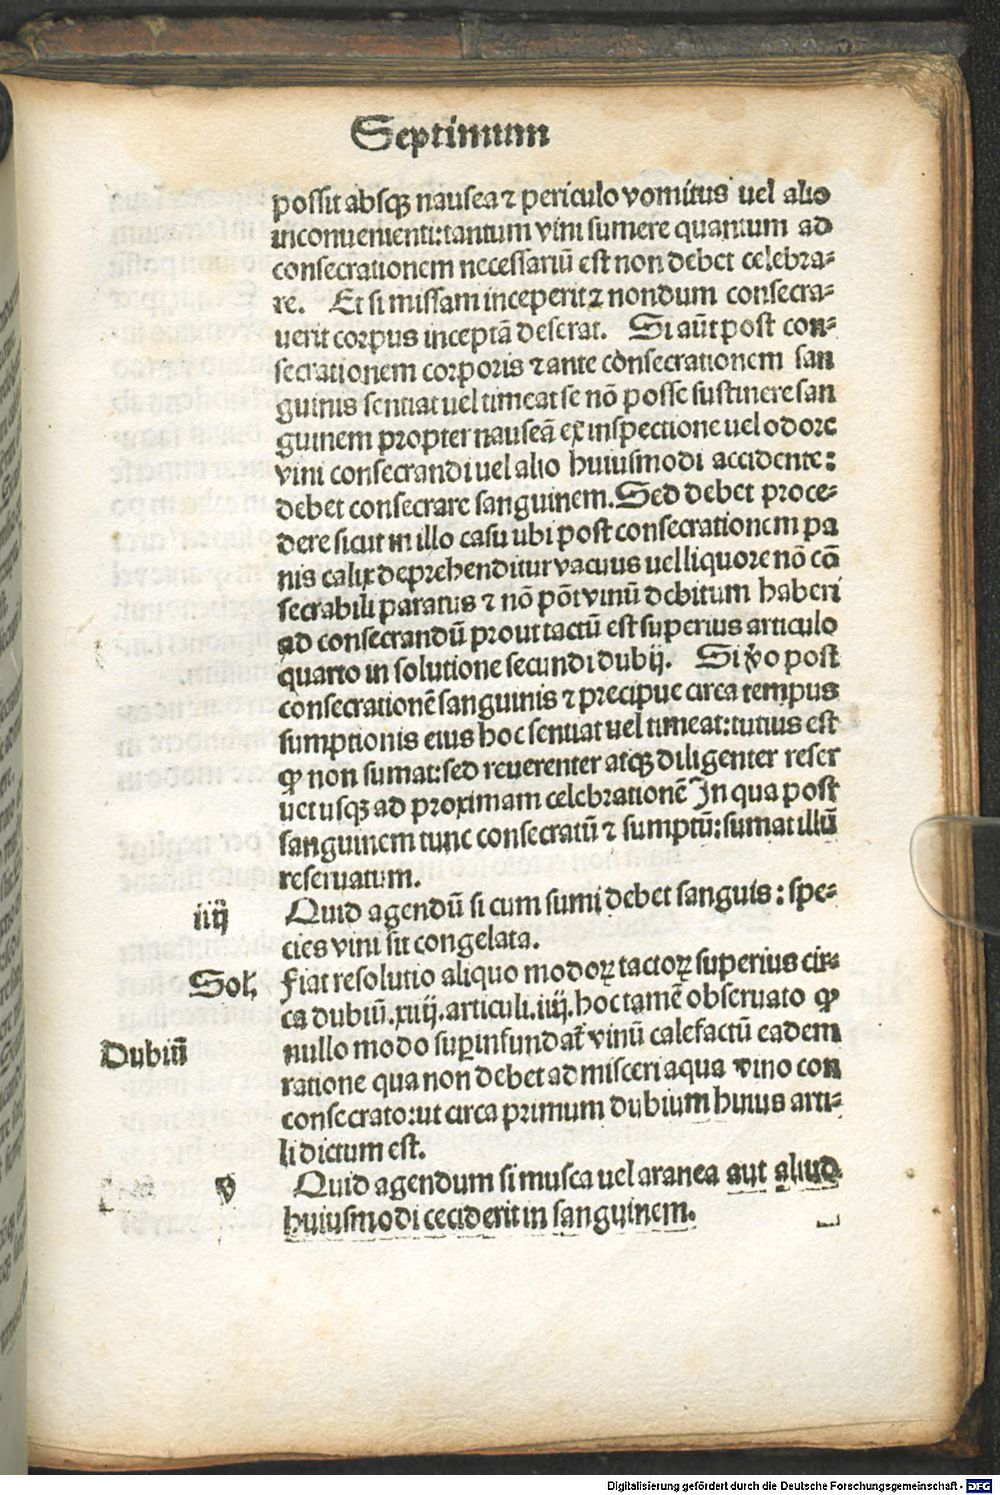 Septimum
possit absqꝫ nausea ⁊ periculo vomitus uel alio
inconuenienti:tantum vini sumere quantum ad
consecrationem necessariū est non debet celebra-
re. Et si missam inceperit ⁊ nondum consecra-
uerit corpus inceptā deserat. Si aūt post con-
secrationem corporis ⁊ ante consecrationem san
guinis sentiat uel timeat se nō posse sustinere san
guinem propter nauseā ex inspectione uel odore
vini consecrandi uel alio huiusmodi accidente:
debet consecrare sanguinem. Sed debet proce-
dere sicut in illo casu ubi post consecrationem pa
nis calix deprehenditur vacuus uel liquore nō cō
secrabili paratus ⁊ nō pōt vinū debitum haberi
ad consecrandū prout tactū est superius articulo
quarto in solutione secundi dubij. Si v̊o post
consecrationē sanguinis ⁊ precipue circa tempus
sumptionis eius hoc sentiat uel timeat:tutius est
ꝙ non sumat:sed reuerenter atqꝫ diligenter reser
uet usqꝫ ad proximam celebrationē In qua post
sanguinem tunc consecratū ⁊ sumptū:sumat illū
reseruatum.
iiij Quid agendū si cum sumi debet sanguis: spe-
cies vini sit congelata.
Sol. Fiat resolutio aliquo modoꝝ tactoꝝ superius cir-
ca dubiū.xiiij.articuli.iiij.hoc tamē obseruato ꝙ
Dubiū nullo modo suꝑinfundat̄ vinū calefactū eadem
ratione qua non debet admisceri aqua vino con
consecrato:ut circa primum dubium huius arti-
li dictum est.
v Quid agendum si musca uel aranea aut aliud
huiusmodi ceciderit in sanguinem.
Digitalisierung gefördert durch die Deutsche Forschungsgemeinschaft - DFG